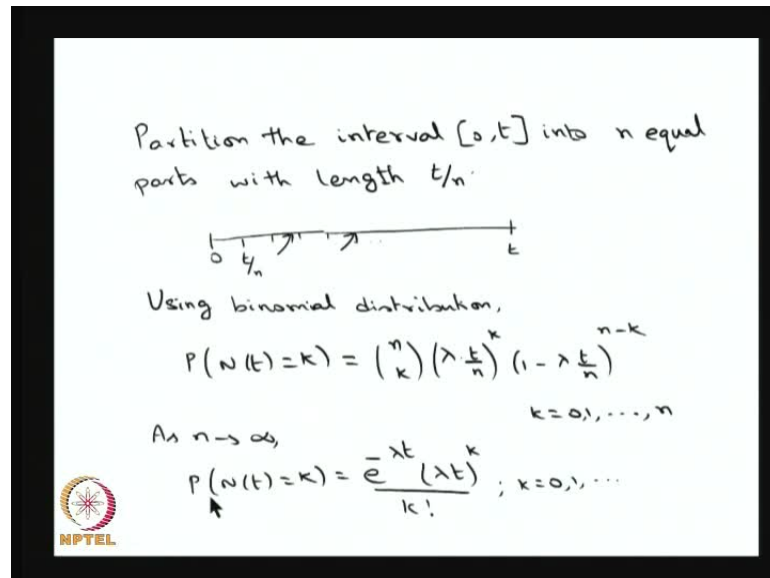 Partition the interval [0,t] into n equal
parts with length t/n.
0 t/n ... t
Using binomial distribution,
P(N(t)=k) = (n k) (λ t/n)^k (1 - λ t/n)^{n-k}
k=0,1,...,n
As n→∞,
P(N(t)=k) = e^{-λt} (λt)^k / k! ; k=0,1,...
NPTEL